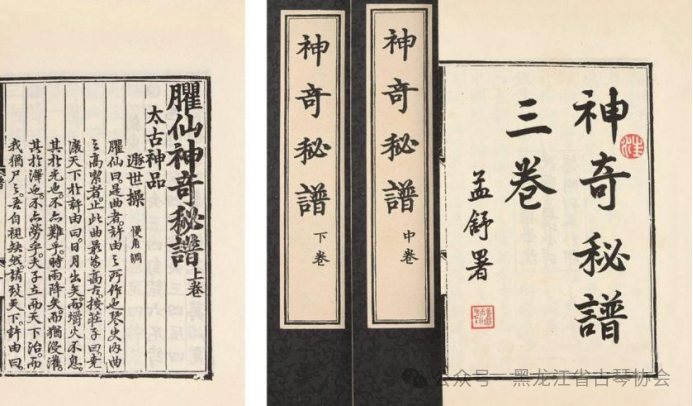 臞仙神奇秘譜上卷
太古神品
遯世操 慢角調
臞仙曰是曲者許由之所作也琴史內曲
之高者止此曲最為高古按莊子曰堯
讓天下於許由曰日月出矣而爝火不息
其於光也不亦難乎時雨降矣而猶浸灌
其於澤也不亦勞乎夫子立而天下治而
我猶尸之吾自視缺然請致天下許由曰
神奇秘譜 下卷
神奇秘譜 中卷
神奇秘譜
三卷
孟舒署
公众号—黑龙江省古琴协会